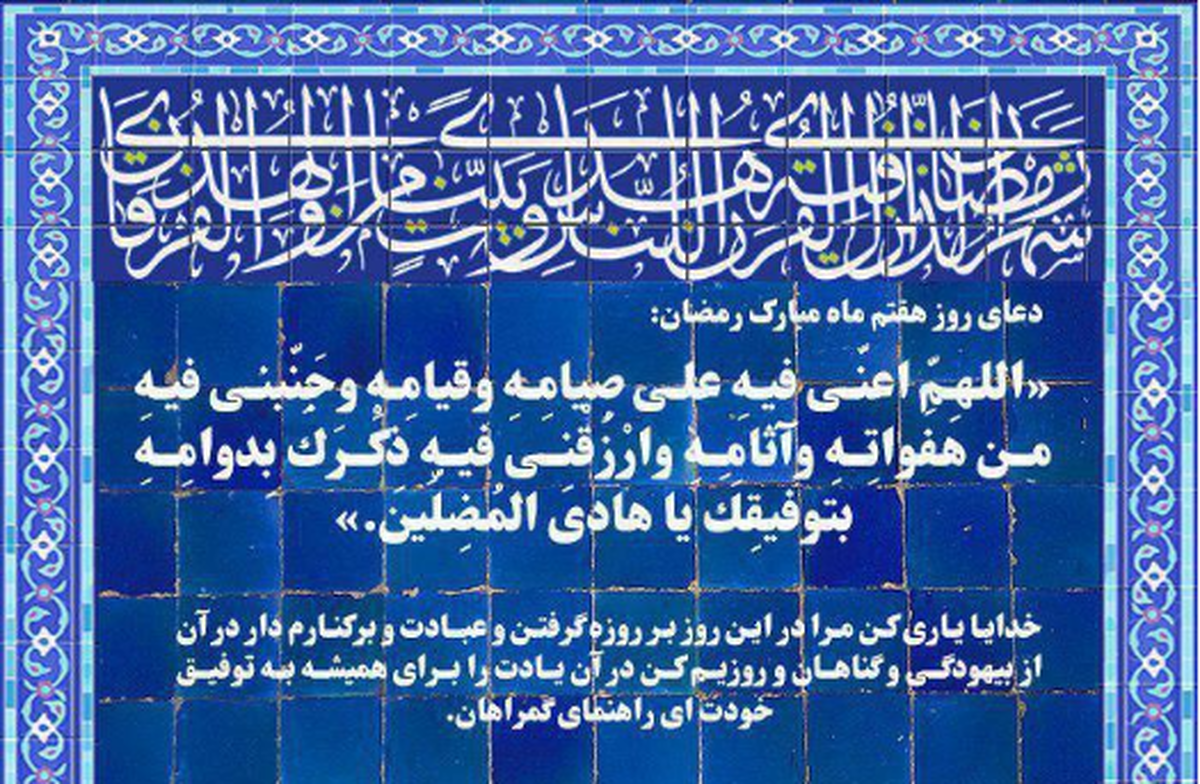 شهر رمضان الذی أنزل فیه القرآن هدی للناس وبینات من الهدی والفرقان
دعای روز هفتم ماه مبارک رمضان:
«اللهمّ اعنّی فیه علی صیامِهِ وقیامِهِ وجَنّبنی فیهِ
مِن هفواتِهِ وآثامِهِ وارْزُقنی فیهِ ذکْرَك بدوامِهِ
بتوفیقِك یا هادیَ المُضِلین.»
خدایا یاری کن مرا در این روز بر روزه گرفتن و عبادت و برکنارم دار در آن
از بیهودگی و گناهان و روزیم کن در آن یادت را برای همیشه به توفیق
خودت ای راهنمای گمراهان.